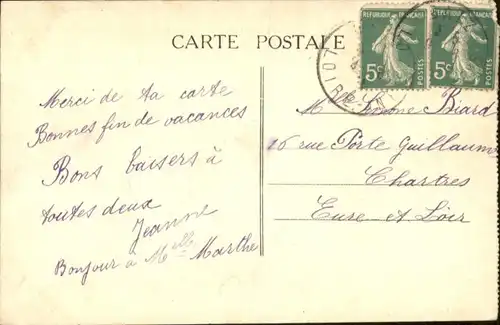 CARTE POSTALE
REPUBLIQUE FRANÇAISE
5c POSTES
REPUBLIQUE FRANÇAISE
5c POSTES
Merci de ta carte
Bonnes fin de vacances
Bons baisers à
toutes deux
Jeanne
Bonjour à Melle Marthe
Melle Simone Biard
26 rue Porte Guillaume
Chartres
Eure-et-Loir